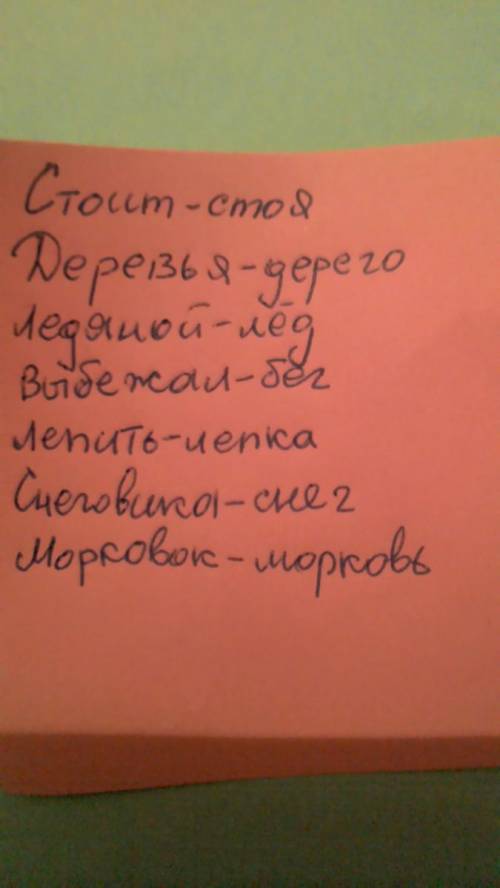 Стоит-стоя
Деревья-дерево
Ледяной-лёд
Выбежал-бег
Лепить-лепка
Снеговика-снег
Морковок-морковь